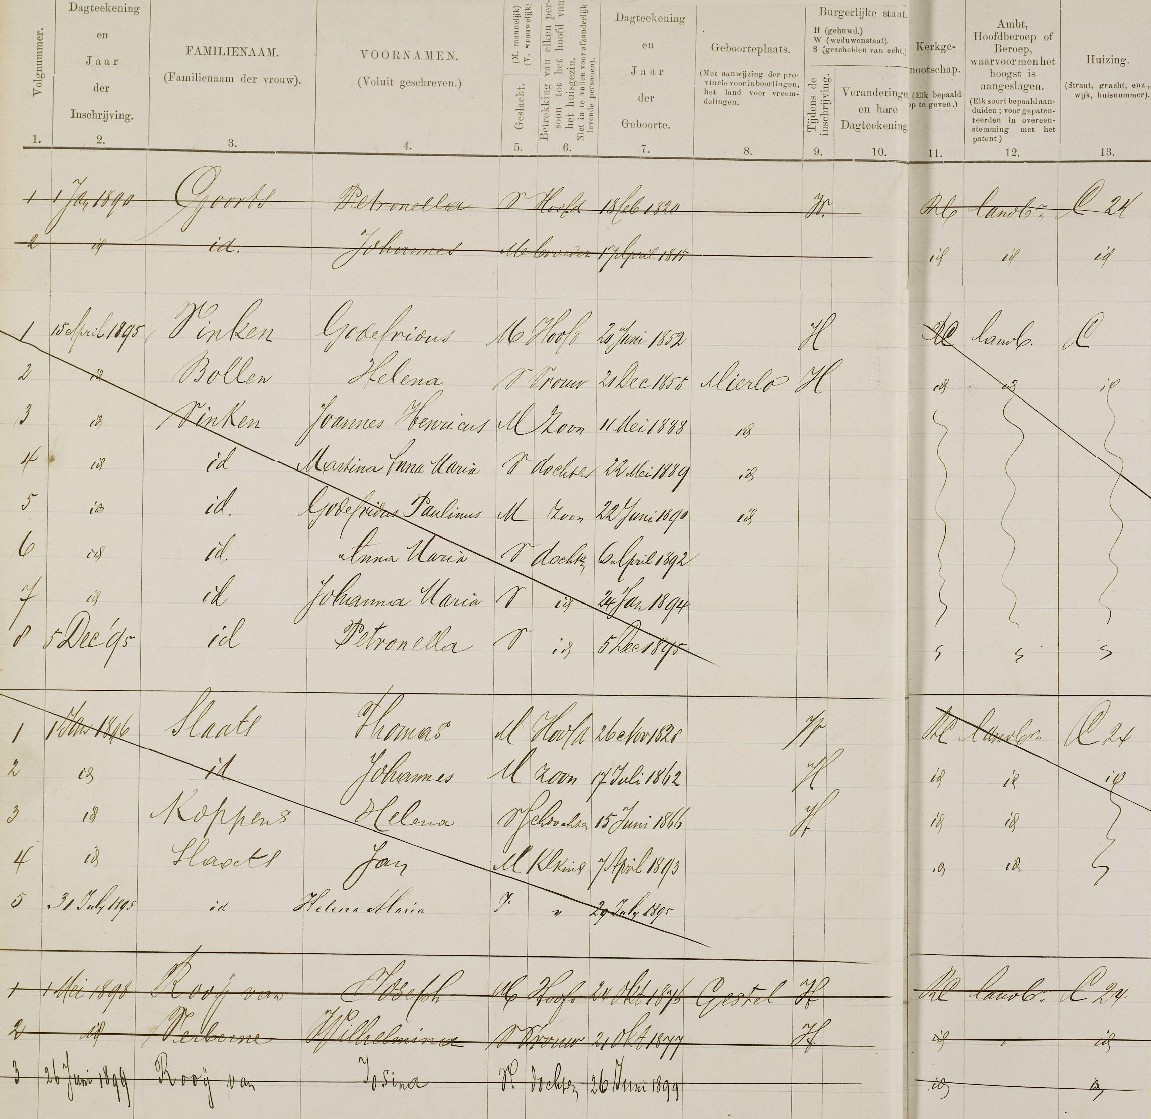 Volgnummer.
Dagteekening en Jaar der Inschrijving.
FAMILIENAAM. (Familienaam der vrouw).
VOORNAMEN. (Voluit geschreven.)
Geslacht. (M. mannelijk) (V. vrouwelijk)
Betrekking van elken persoon tot het hoofd van het huisgezin.
Dagteekening en Jaar der Geboorte.
Geboorteplaats. (Met aanwijzing der provincie voor inboorlingen, het land voor vreemdelingen.
Burgerlijke staat.
H (gehuwd.)
W (weduwenstaat).
S (gescheiden van echt.)
Tijdens de inschrijving.
Veranderinge en hare Dagteekening
Kerkgenootschap. (Elk bepaald op te geven.)
Ambt, Hoofdberoep of Beroep, waarvoor men het hoogst is aangeslagen.
(Elk soort bepaald aanduiden; voor gepatenteerden in overeenstemming met het patent.)
Huizing. (Straat, gracht, enz., wijk, huisnummer).
1. 2. 3. 4. 5. 6. 7. 8. 9. 10. 11. 12. 13.
1 1 Jan 1890 Goorts Petronella V Hoofd 18 feb 1820 W. RC landbr. C 24
2 id id. Johannes M broeder 17 April 1815 id id id
1 15 April 1895 Vinken Godefridus M Hoofd 20 Juni 1852 H RC landb. C
2 id Bollen Helena V Vrouw 20 Dec 1855 Mierlo H id id id
3 id Vinken Joannes Henricus M Zoon 11 Mei 1888 id
4 id id Martina Anna Maria V dochter 22 Mei 1889 id
5 id id. Godefridus Paulinus M Zoon 22 Juni 1890 id
6 id id. Anna Maria V dochter 6 April 1892
7 id id Johanna Maria V id 24 Jan 1894
8 5 Dec '95 id Petronella V id 5 Dec 1895
1 1 Jan 1896 Slaats Thomas M Hoofd 26 Nov 1828 W RC landbr C 24
2 id id Johannes M Zoon 17 Juli 1862 H id id id
3 id Koppens Helena V 15 Juni 1866 H id id
4 id Slaats Jan M Klkind 7 April 1893 id id
5 30 July 1895 id Helena Maria V " 29 July 1895
1 1 Mei 1898 Rooij van Joseph M Hoofd 24 Okt 1875 Gestel H RC landbr. C 24
2 id Verberne Wilhelmina V Vrouw 21 Okt 1877 H id id
3 26 Juni 1899 Rooij van Josina V dochter 26 Juni 1899 id id